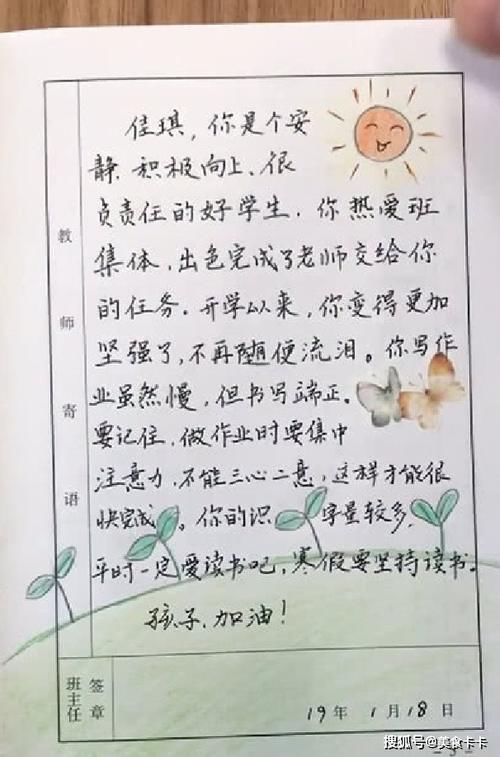 教师寄语
佳琪，你是个安
静、积极向上、很
负责任的好学生．你热爱班
集体，出色完成了老师交给你
的任务．开学以来，你变得更加
坚强了，不再随便流泪。你写作
业虽然慢，但书写端正。
要记住，做作业时要集中
注意力，不能三心二意，这样才能很
快完成。你的识字量较多，
平时一定爱读书吧，寒假要坚持读书。
孩子，加油！
班主任
签章
19年 1月18日
搜狐号@美食卡卡